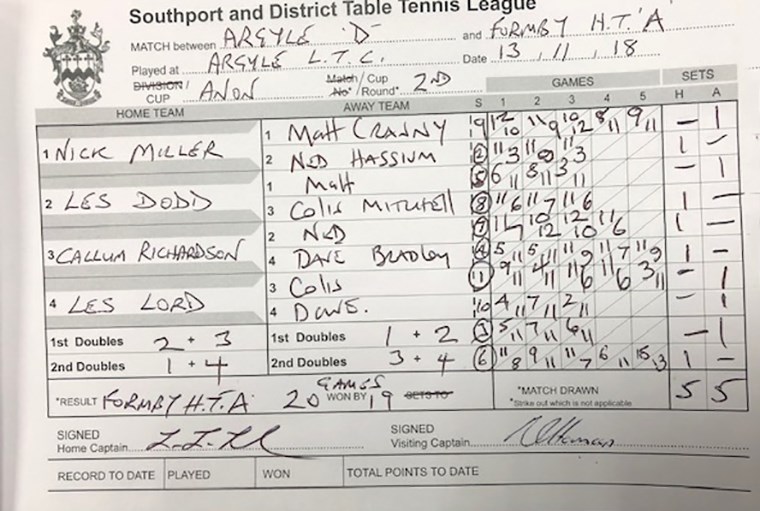 Southport and District Table Tennis League
MATCH between ARGYLE 'D' and FORMBY H.T.'A
Played at ARGYLE L.T.C. Date 13, 11, 18
DIVISION / CUP ANON Match No* / Cup Round* 2ND
GAMES SETS
HOME TEAM AWAY TEAM S 1 2 3 4 5 H A
1 NICK MILLER
2 LES DODD
3 CALLUM RICHARDSON
4 LES LORD
1 Matt CRANNY 9 12 10 11 9 10 12 8 11 9 11 – 1
2 NED HASSIUM 2 11 3 11 8 11 3 1 –
1 Matt 5 6 11 8 11 3 11 – 1
3 Colin MITCHELL 8 11 6 11 7 11 6 1 –
2 NED 7 11 7 10 12 12 10 11 6 1 –
4 DAVE BRADLEY 4 5 11 5 11 11 9 11 7 11 9 1 –
3 Colin 1 9 11 4 11 11 6 11 6 3 11 – 1
4 DAVE. 10 4 11 7 11 2 11 – 1
1st Doubles 2 + 3 1st Doubles 1 + 2 3 5 11 7 11 6 11 – 1
2nd Doubles 1 + 4 2nd Doubles 3 + 4 6 11 8 9 11 11 7 6 11 15 13 1 –
*RESULT FORMBY H.T.'A 20 GAMES WON BY 19 SETS TO
*MATCH DRAWN 5 5
*Strike out which is not applicable
SIGNED
Home Captain
SIGNED
Visiting Captain
RECORD TO DATE PLAYED WON TOTAL POINTS TO DATE